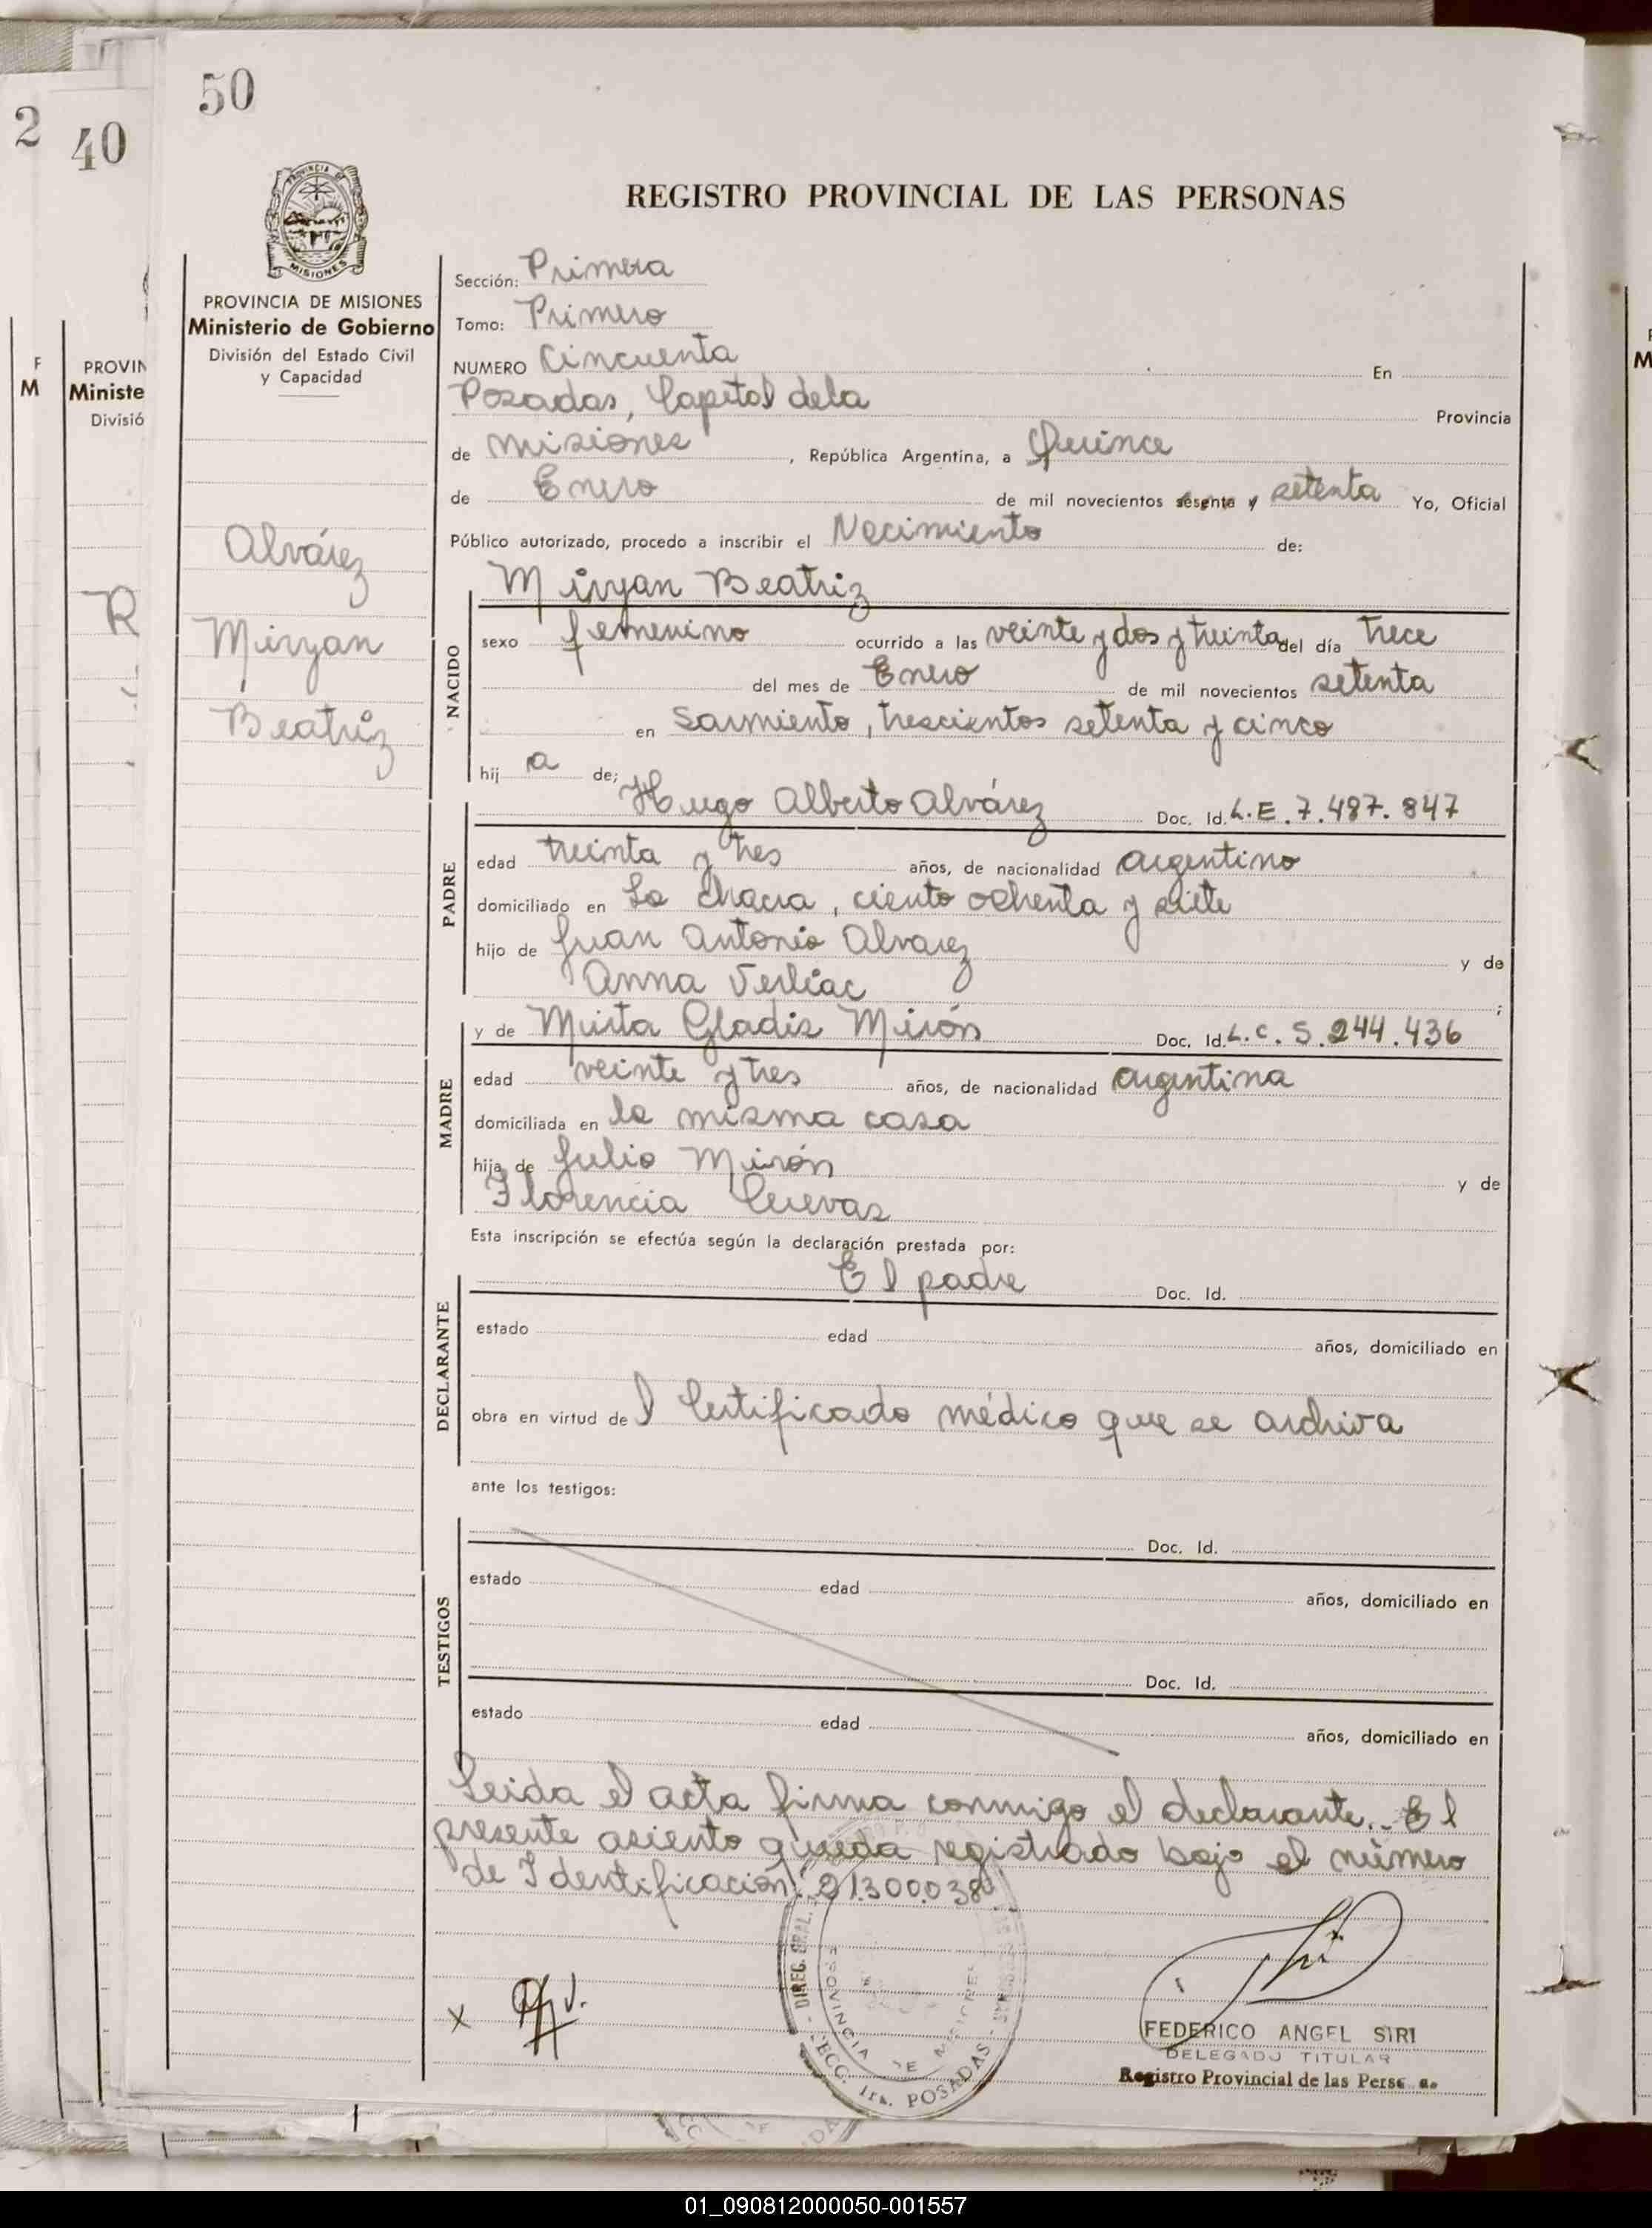 50
2
40
REGISTRO PROVINCIAL DE LAS PERSONAS
PROVINCIA DE MISIONES
Ministerio de Gobierno
División del Estado Civil
y Capacidad
Alvárez
Miryan
Beatriz
F
M
PROVIN
Ministe
Divisió
R
Sección: Primera
Tomo: Primero
NUMERO Cincuenta En
Posadas, Capital dela Provincia
de misiones , República Argentina, a Quince
de Enero de mil novecientos sesenta y setenta Yo, Oficial
Público autorizado, procedo a inscribir el Nacimiento de:
Miryan Beatriz
NACIDO
sexo femenino ocurrido a las veinte y dos y treinta del día trece
del mes de Enero de mil novecientos setenta
en Sarmiento, trescientos setenta y cinco
hij a de;
PADRE
Hugo Alberto Alvárez Doc. Id. L.E. 7.487.847
edad treinta y tres años, de nacionalidad argentino
domiciliado en La chacra, ciento ochenta y siete
hijo de Juan Antonio Alvarez y de
Anna Verliac ;
MADRE
y de Mirta Gladis Mirón Doc. Id. L.C. 5.244.436
edad veinte y tres años, de nacionalidad argentina
domiciliada en la misma casa
hija de Julio Mirón y de
Florencia Cuevas
Esta inscripción se efectúa según la declaración prestada por:
DECLARANTE
El padre Doc. Id.
estado edad años, domiciliado en
obra en virtud de l Certificado médico que se archiva
ante los testigos:
TESTIGOS
Doc. Id.
estado edad años, domiciliado en
Doc. Id.
estado edad años, domiciliado en
Leida el acta firma conmigo el declarante.. El
presente asiento queda registrado bajo el número
de Identificación: 21.300.038
DIREC. GRAL.
PROVINCIA DE MISIONES
SECC. 1ra. POSADAS
x
FEDERICO ANGEL SIRI
DELEGADO TITULAR
Registro Provincial de las Pers
01_090812000050-001557